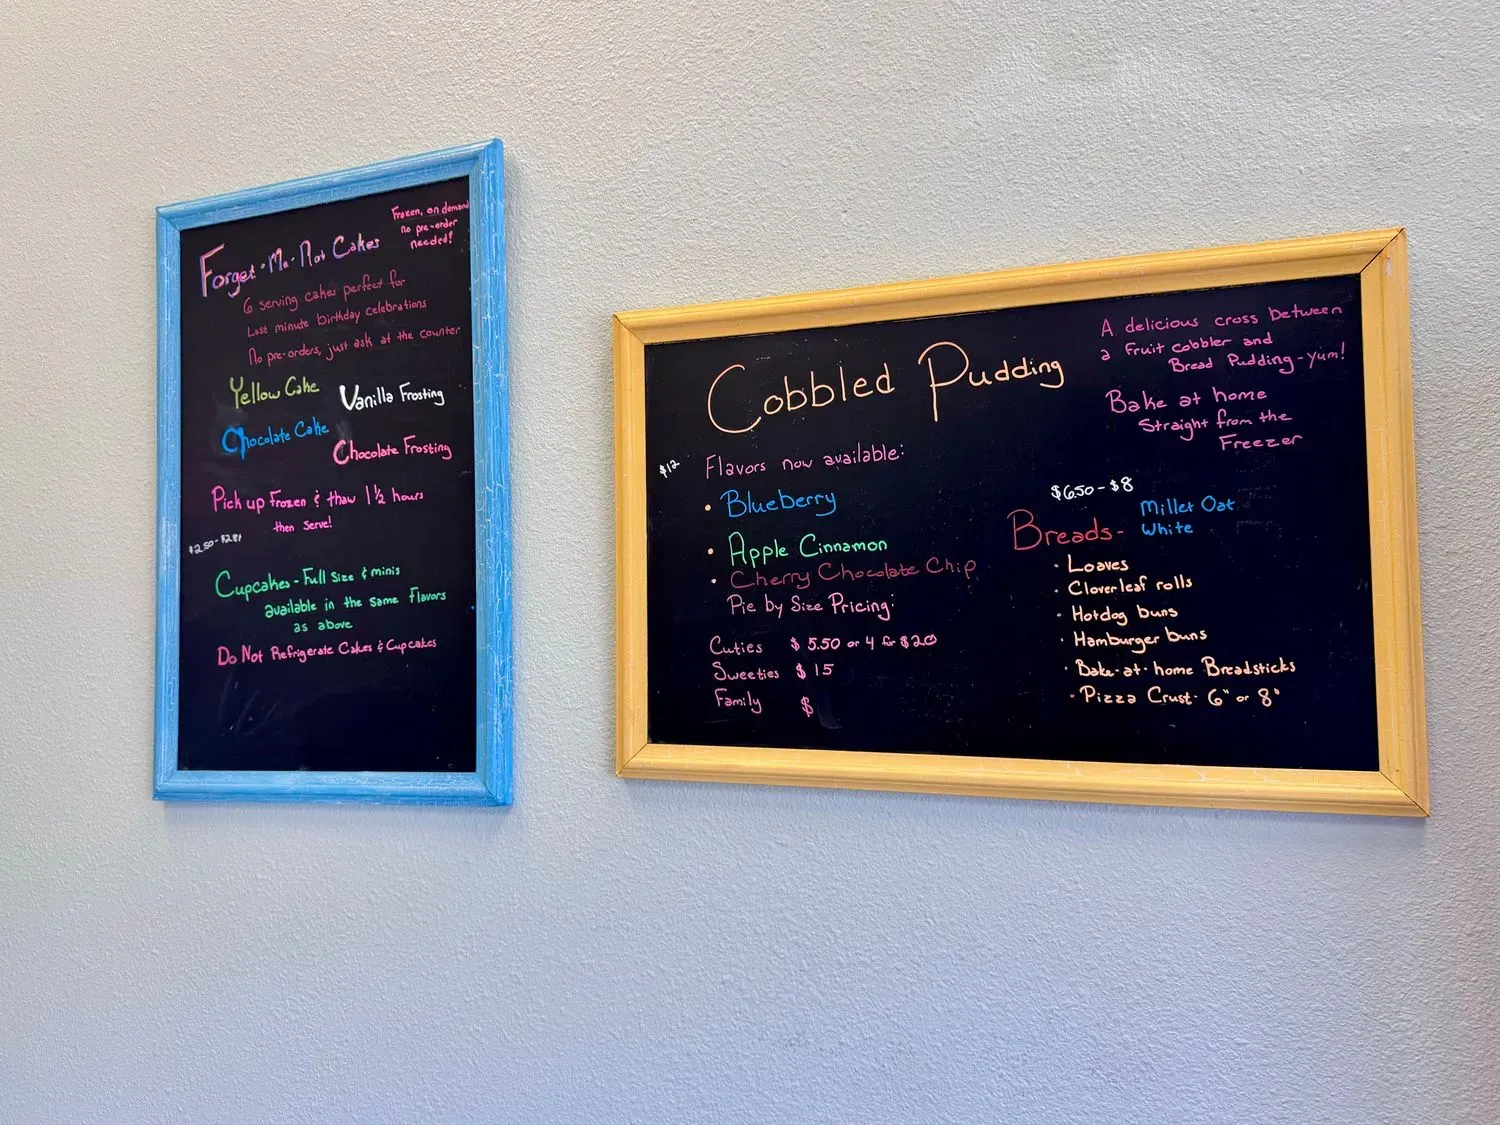 Frozen, on demand
no pre-order
needed!
Forget-Me-Not Cakes
6 serving cakes perfect for
Last minute birthday celebrations
No pre-orders, just ask at the counter
Yellow Cake
Vanilla Frosting
Chocolate Cake
Chocolate Frosting
Pick up Frozen & thaw 1 1/2 hours
then serve!
Cupcakes - Full Size & minis
available in the same Flavors
as above
Do Not Refrigerate Cakes & Cupcakes
Cobbled Pudding
A delicious cross between
a fruit cobbler and
Bread Pudding - yum!
Bake at home
Straight from the
Freezer
$12
Flavors now available:
• Blueberry
• Apple Cinnamon
• Cherry Chocolate Chip
Pie by Size Pricing:
Cuties $5.50 or 4 for $20
Sweeties $15
Family $
$6.50 - $8
Breads- Millet Oat
White
• Loaves
• Cloverleaf rolls
• Hotdog buns
• Hamburger buns
• Bake-at-home Breadsticks
• Pizza Crust - 6" or 8"